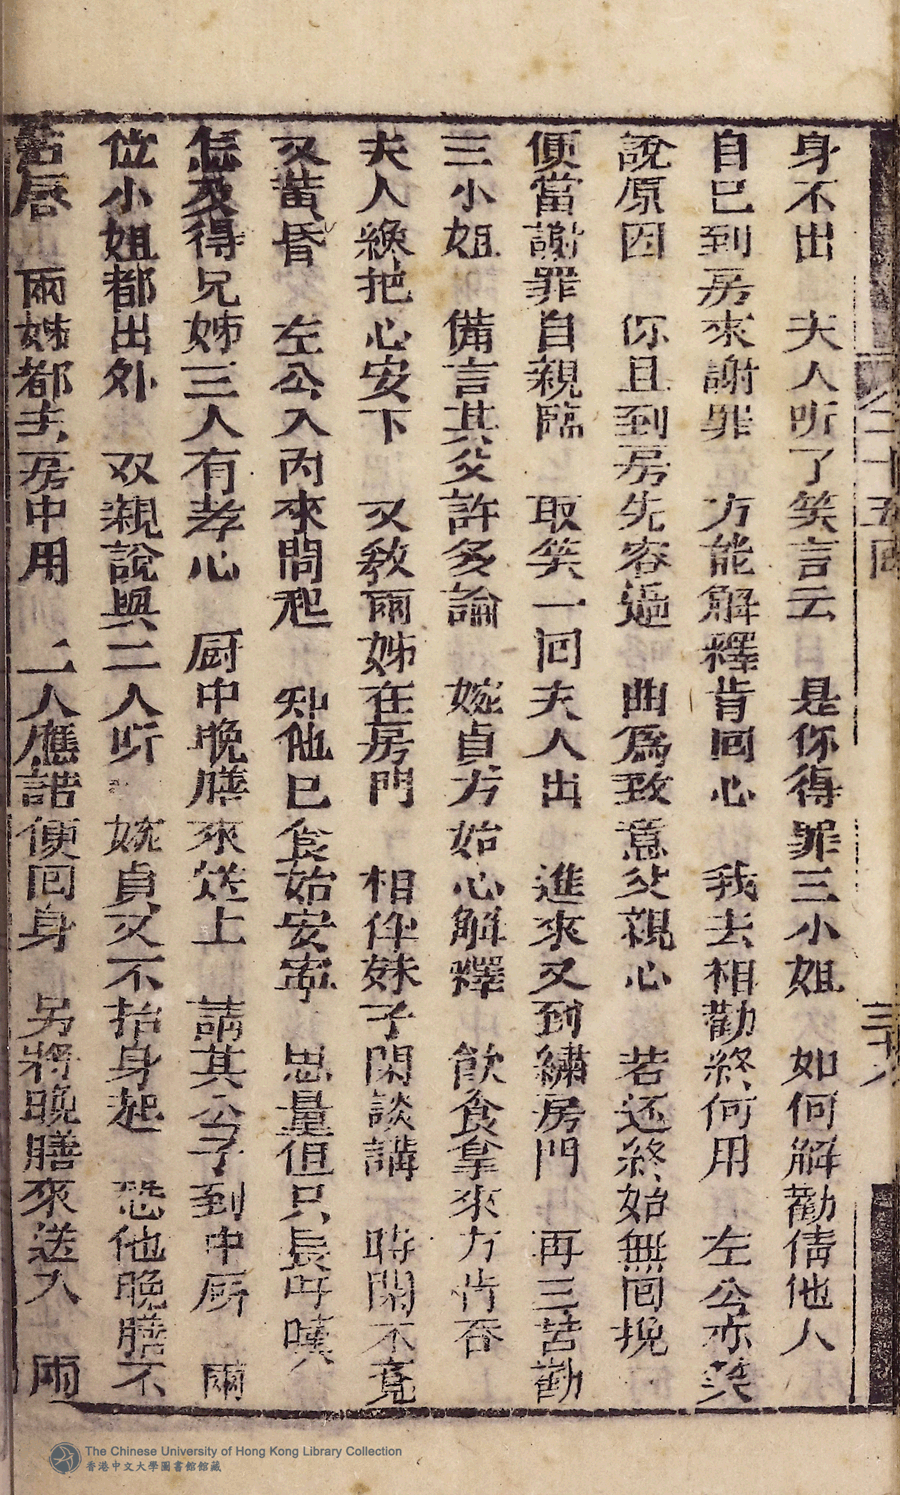 二十五回
三十八
身不出　夫人听了笑言云　是你得罪三小姐　如何解勸倩他人
自已到房來謝罪　方能解釋肯回心　我去相勸終何用　左公亦笑
說原因　你且到房先容逼　曲為致意父親心　若还終始無囘挽
便當謝罪自親臨　取笑一回夫人出　進來又到繡房門　再三苦勸
三小姐　備言其父許多論　婉貞方始心解釋　飲食拿來方肯吞
夫人終把心安下　又敎兩姊在房門　相伴妹子閑談講　時閑不覺
又黃昏　左公入內來問起　知他已食始安寧　思量但只長吁嘆
怎及得兄姊三人有孝心　厨中晚膳來送上　請其公子到中厨　兩
位小姐都出外　双親說與二人听　婉貞又不抬身起　恐他晚膳不
沾唇　兩姊都去房中用　二人應諾便回身　另將晚膳來送入　兩
The Chinese University of Hong Kong Library Collection
香港中文大學圖書館館藏